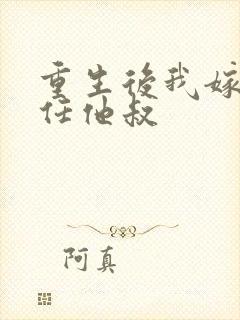 重生後我嫁
任他叔
阿真